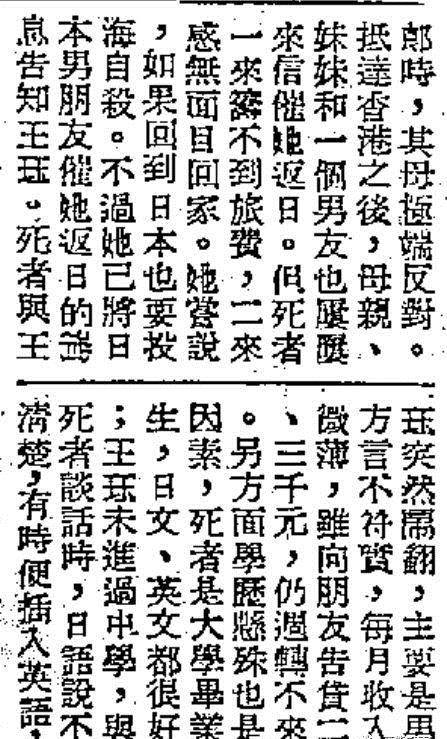 郎時，其母極端反對。
抵達香港之後，母親、
妹妹和一個男友也屢屢
來信催她返日。但死者
一來籌不到旅費，二來
感無面目回家。她嘗說
，如果回到日本也要投
海自殺。不過她已將日
本男朋友催她返日的消
息告知王珏。死者與王
珏突然鬧翻，主要是男
方言不符實，每月收入
微薄，雖向朋友告貸二
、三千元，仍週轉不來
。另方面學歷懸殊也是
因素，死者是大學畢業
生，日文、英文都很好
；王珏未進過中學，與
死者談話時，日語說不
清楚，有時便插入英語，